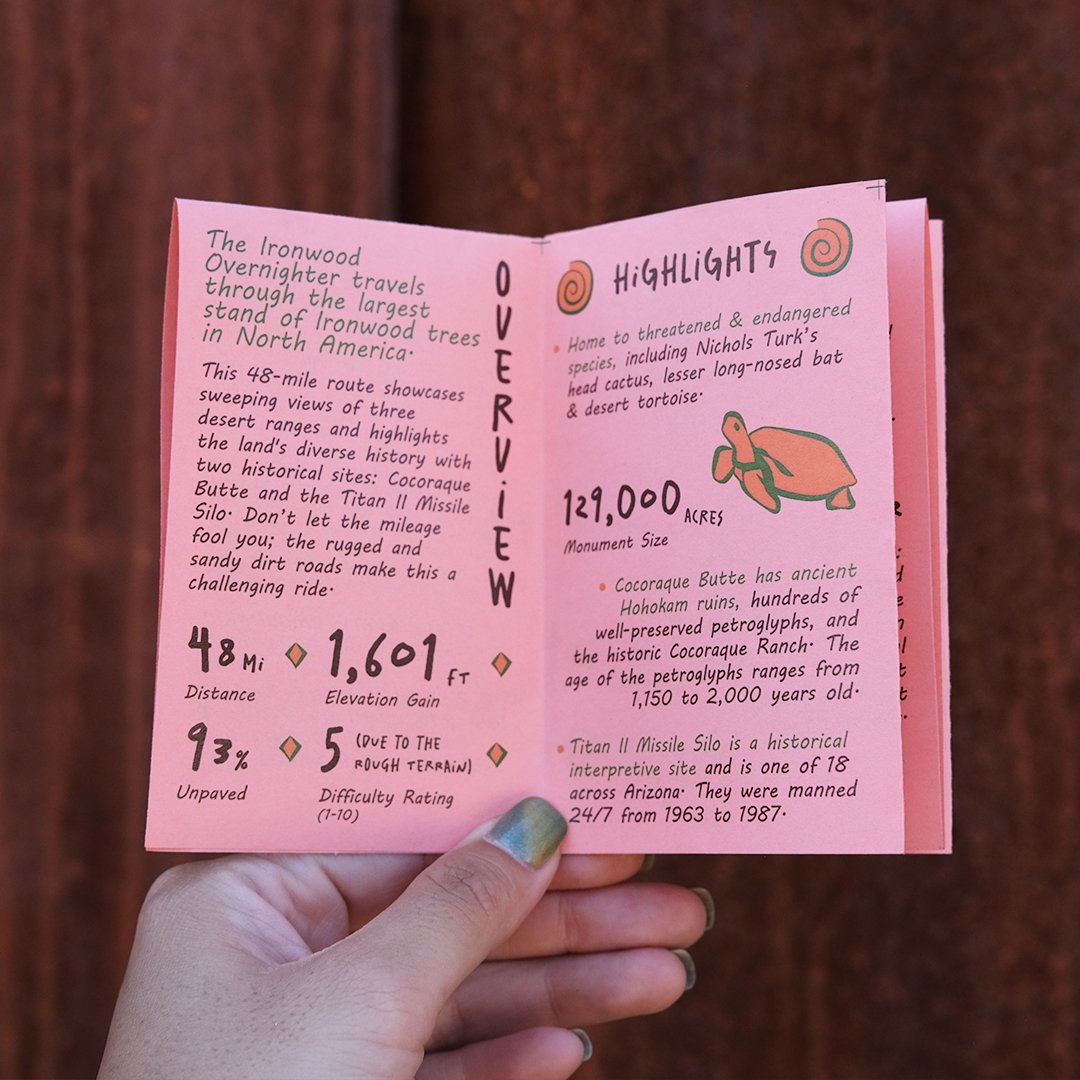 The Ironwood
Overnighter travels
through the largest
stand of Ironwood trees
in North America.
This 48-mile route showcases
sweeping views of three
desert ranges and highlights
the land's diverse history with
two historical sites: Cocoraque
Butte and the Titan II Missile
Silo. Don't let the mileage
fool you; the rugged and
sandy dirt roads make this a
challenging ride.
OVERVIEW
48 Mi
Distance
1,601 FT
Elevation Gain
93%
Unpaved
5 (DUE TO THE
ROUGH TERRAIN)
Difficulty Rating
(1-10)
HIGHLIGHTS
• Home to threatened & endangered
species, including Nichols Turk's
head cactus, lesser long-nosed bat
& desert tortoise.
129,000 ACRES
Monument Size
• Cocoraque Butte has ancient
Hohokam ruins, hundreds of
well-preserved petroglyphs, and
the historic Cocoraque Ranch. The
age of the petroglyphs ranges from
1,150 to 2,000 years old.
• Titan II Missile Silo is a historical
interpretive site and is one of 18
across Arizona. They were manned
24/7 from 1963 to 1987.